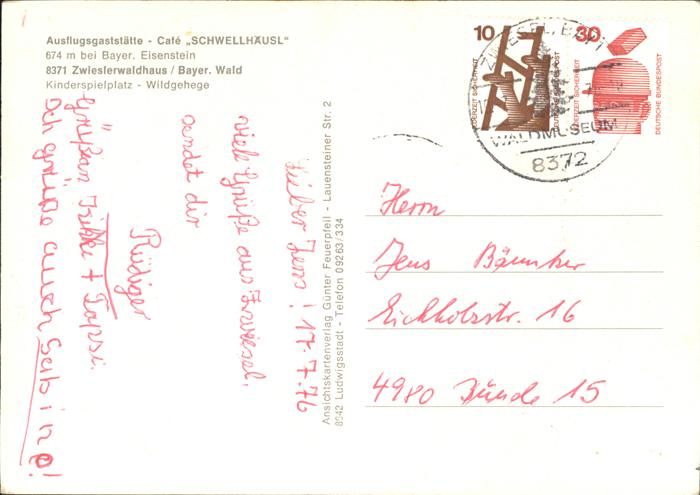 Ausflugsgaststätte - Café „SCHWELLHÄUSL"
674 m bei Bayer. Eisenstein
8371 Zwieslerwaldhaus / Bayer. Wald
Kinderspielplatz - Wildgehege
Ansichtskartenverlag Günter Feuerpfeil - Lauensteiner Str. 2
8642 Ludwigsstadt - Telefon 09263/334
Lieber Jens! 17.7.76
viele Grüße aus Zwiesel.
sendet dir
Rüdiger
Grüßen Frikke + Tapsi.
Ich grüße auch Sabine!
10
JEDERZEIT SICHERHEIT
DEUTSCHE BUNDESPOST
30
JEDERZEIT SICHERHEIT
DEUTSCHE BUNDESPOST
ZWIESEL, BAY 1
WALDMUSEUM
8372
Herrn
Jens Bäunker
Eichholzstr. 16
4980 Bünde 15